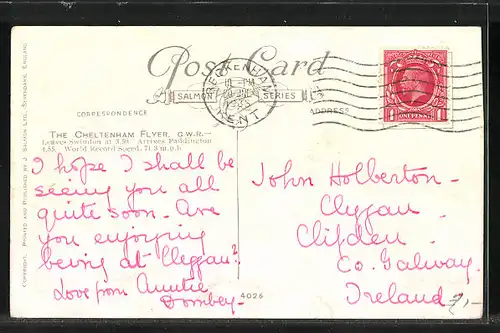 Post Card
BECKENHAM
KENT
SALMON SERIES
CORRESPONDENCE
ADDRESS
1 ONE PENNY 1
THE CHELTENHAM FLYER, G.W.R.—
Leaves Swindon at 3.50 Arrives Paddington
4.55. World Record Speed, 71.3 m.p.h
I hope I shall be
seeing you all
quite soon. Are
you enjoying
being at Cleggan?
Love from Auntie
Dombey-
John Holberton-
Cleggan
Clifden
Co. Galway
Ireland
4026
COPYRIGHT. PRINTED AND PUBLISHED BY J. SALMON LTD., SEVENOAKS, ENGLAND